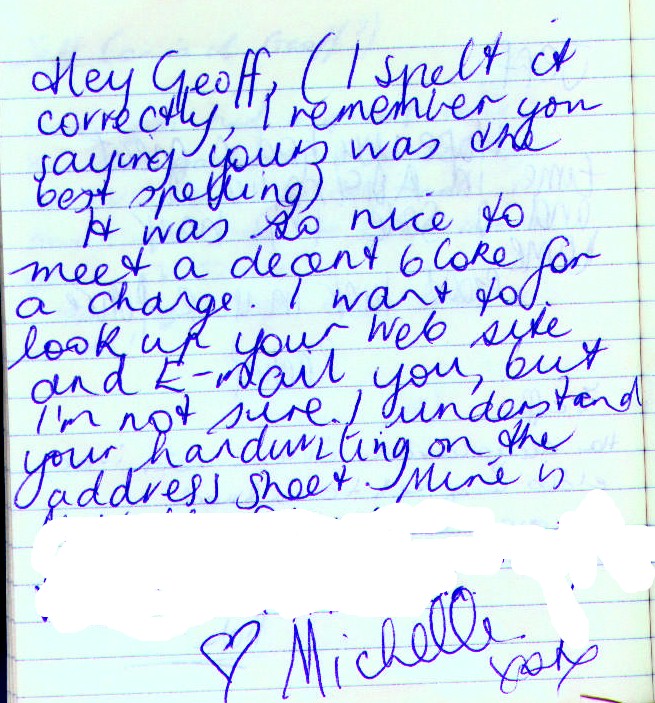 Hey Geoff, (I spelt it
correctly, I remember you
saying yours was the
best spelling)
It was so nice to
meet a decent bloke for
a change. I want to
look up your web site
and E-mail you, but
I'm not sure I understand
your handwriting on the
address sheet. Mine is
♡ Michelle
xoxx